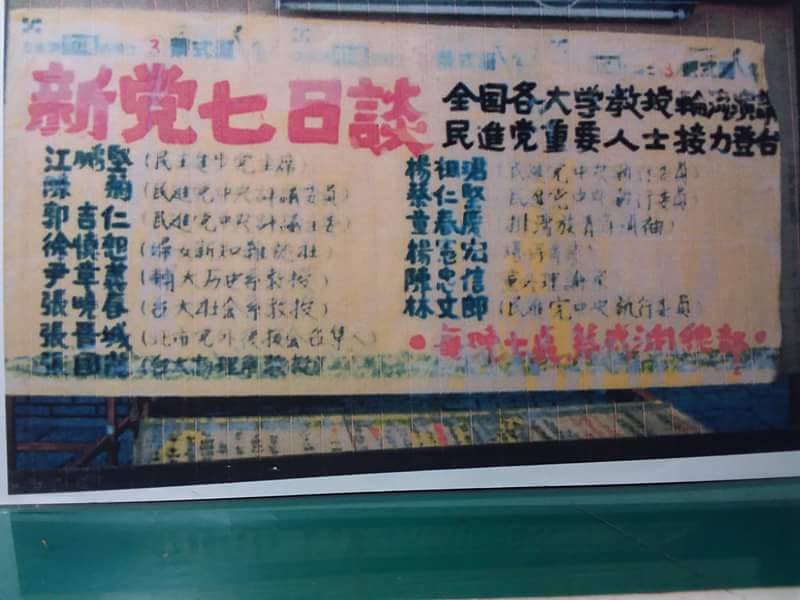 新党七日談
全国各大学教授輪流演講
民進党重要人士接力登台
江鵬堅(民主進步党主席)
陳菊(民進党中央評議委員)
郭吉仁(民進党中央評議主委)
徐慎恕(婦女新知雜誌社)
尹章義(輔大历史系教授)
張曉春(台大社会系教授)
張晋城(北市党外後援会召集人)
張國龍(台大物理學教授)
楊祖珺(民進党中央執行委員)
蔡仁堅(民進党中央執行委員)
童春慶(排湾族青年領袖)
楊憲宏
陳忠信
林文郎(民進党中央執行委員)
每晚七點